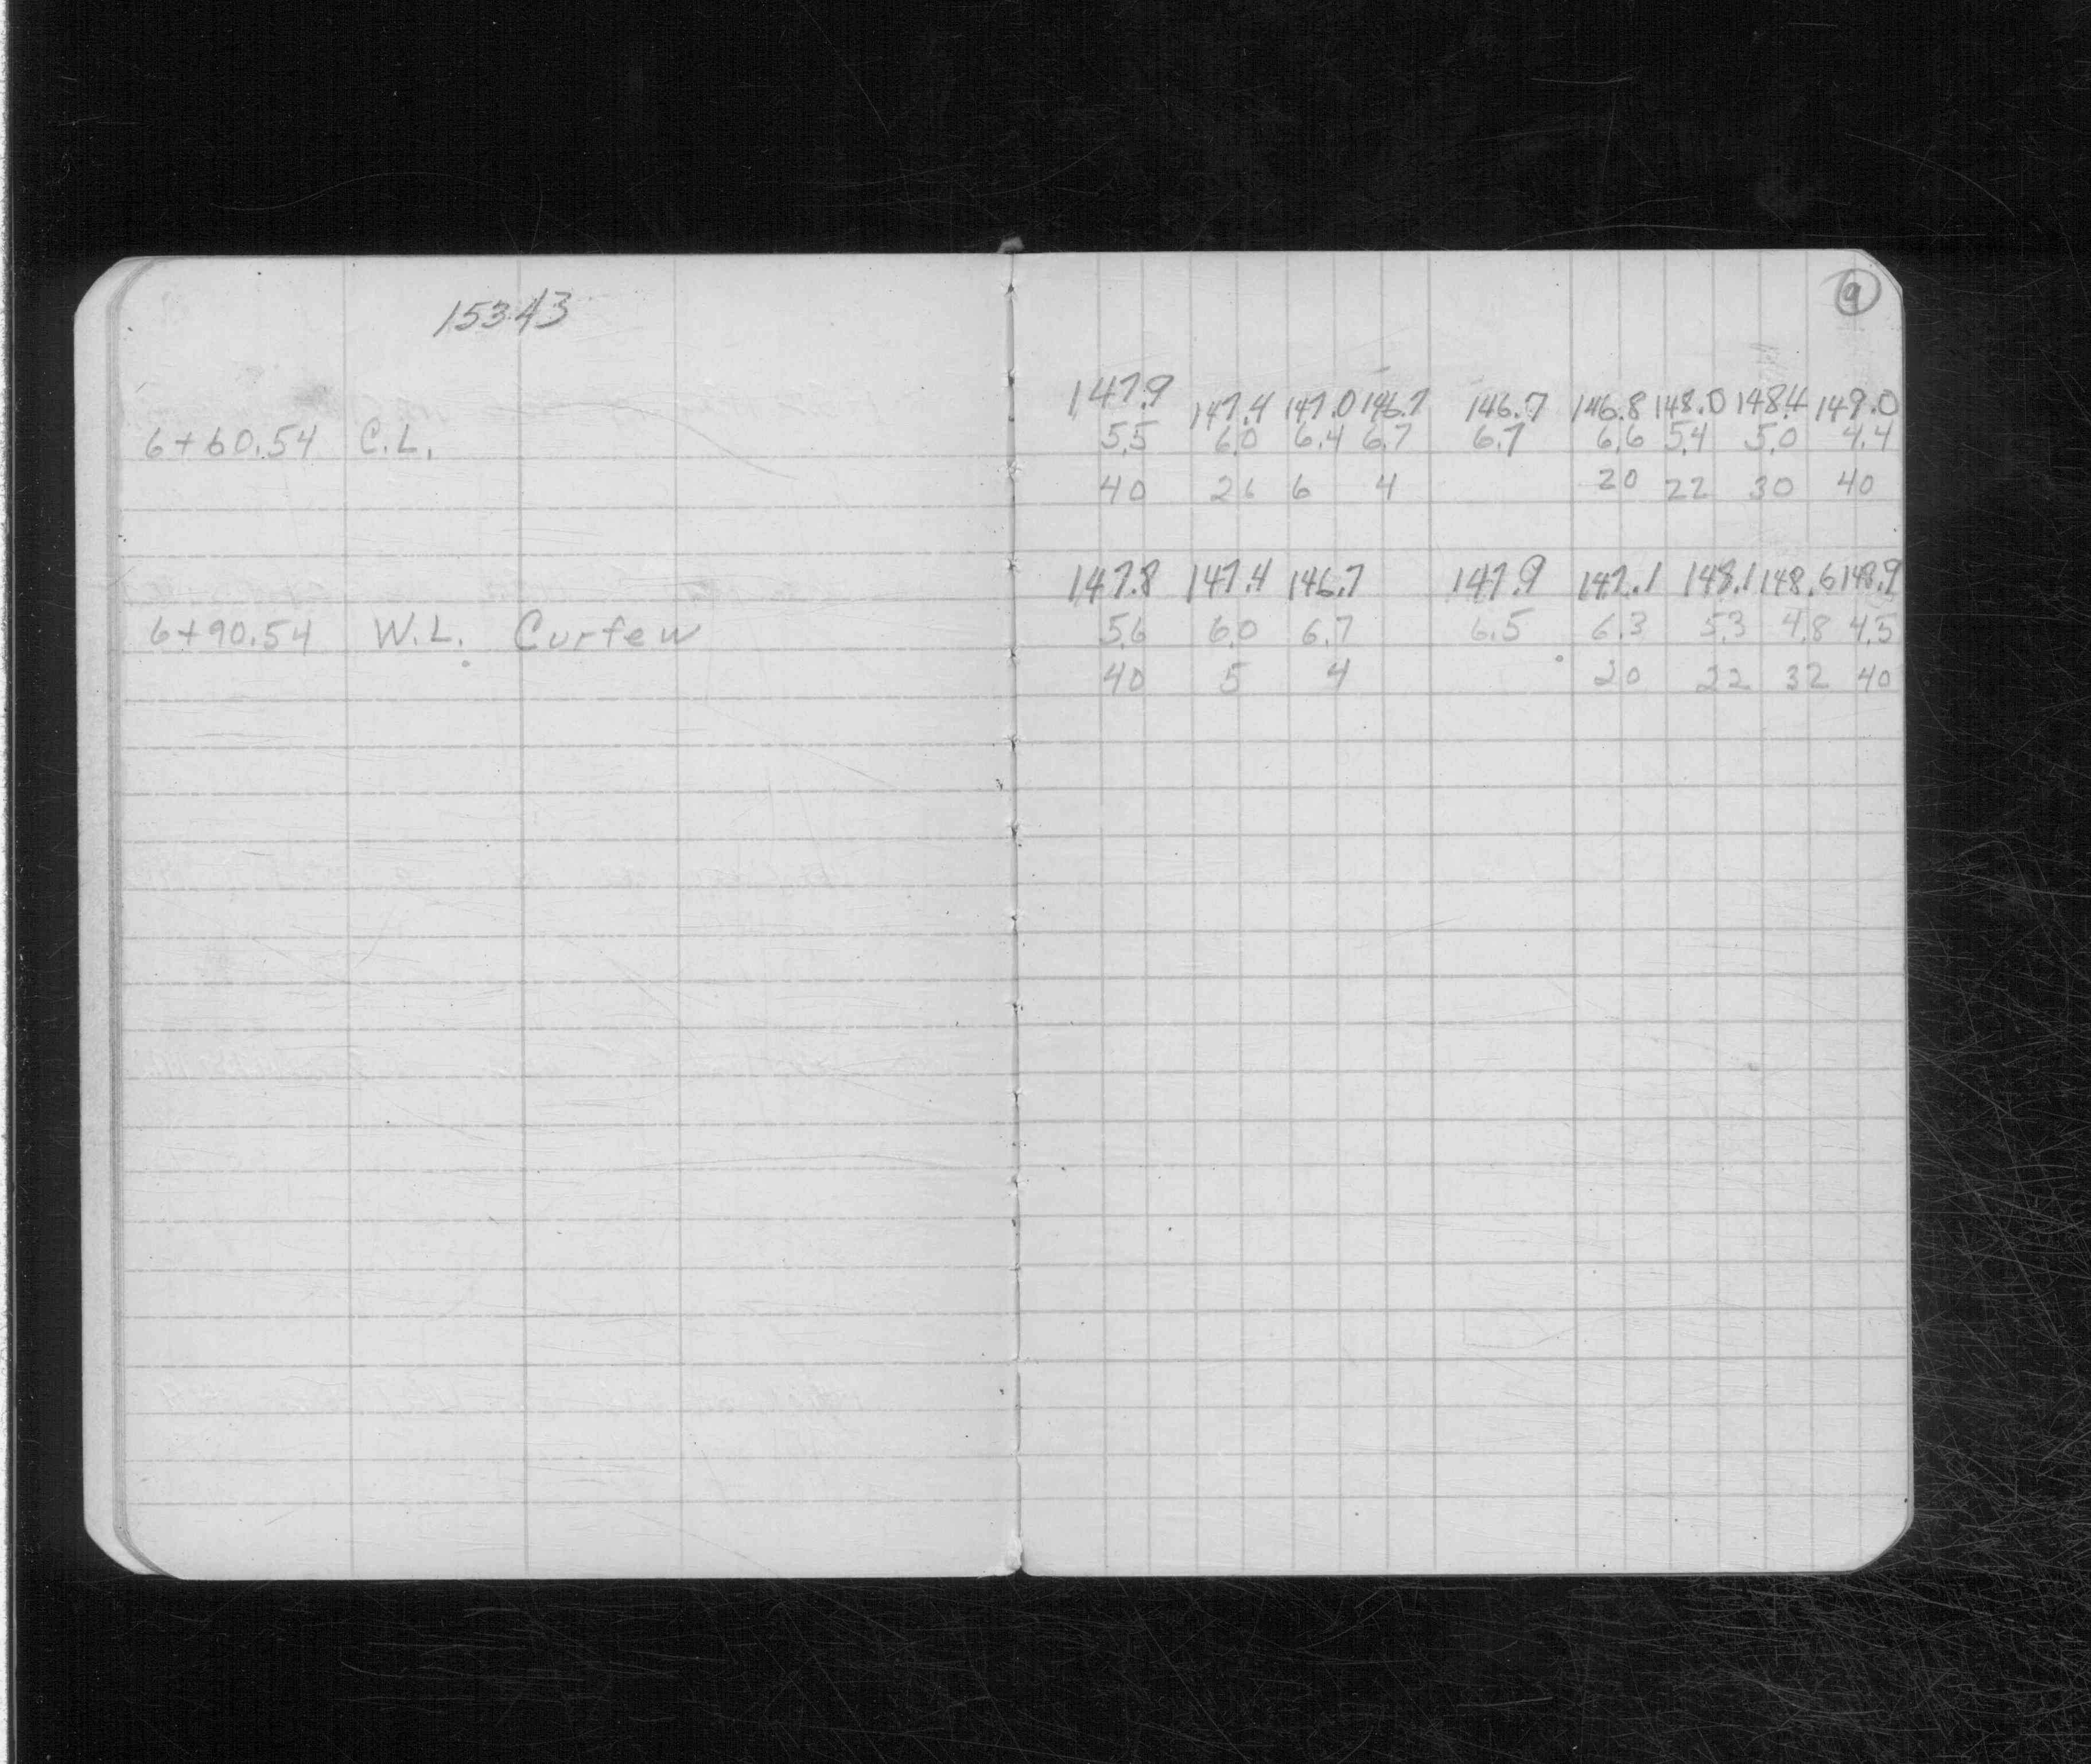 153.43
9
147.9 147.4 147.0 146.7 146.7 146.8 148.0 148.4 149.0
6+60.54 C.L. 5.5 6.0 6.4 6.7 6.7 6.6 5.4 5.0 4.4
40 26 6 4 20 22 30 40
147.8 147.4 146.7 147.9 147.1 148.1 148.6 148.9
6+90.54 W.L. Curfew 5.6 6.0 6.7 6.5 6.3 5.3 4.8 4.5
40 5 4 20 22 32 40